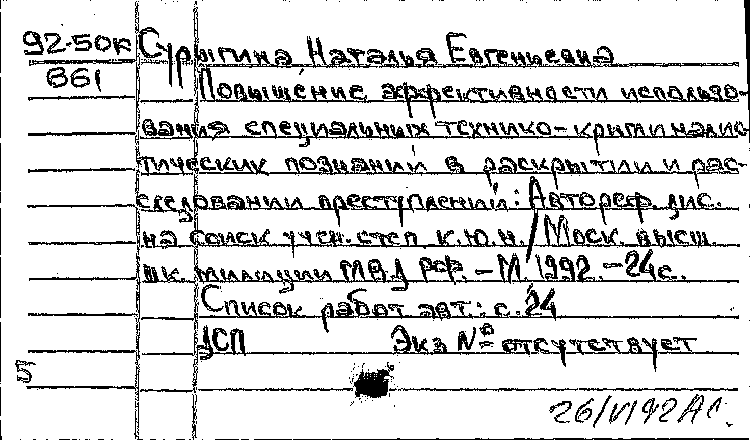 92-50к Сурыгина Наталья Евгеньевна
861 Повышение эффективности использо-
вания специальных технико-криминалис-
тических познаний в раскрытии и рас-
следовании преступлений: Автореф. дис.
на соиск. учен. степ. к.ю.н. / Моск. высш.
шк. милиции МВД РФ. - М. 1992. - 24с.
Список работ авт.: с. 24
ДСП Экз № отсутствует
5